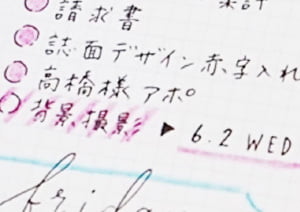 請求書
誌面デザイン赤字入れ
高橋様アポ
背景撮影 ▶ 6.2 WED
frida